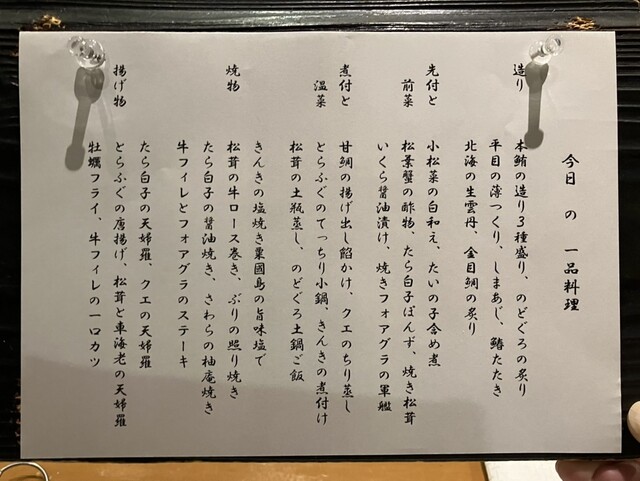 今日 の 一品料理
造り
本鮪の造り3種盛り、のどぐろの炙り
平目の薄つくり、しまあじ、鰆たたき
北海の生雲丹、金目鯛の炙り
先付と
前菜
小松菜の白和え、たいの子含め煮
松葉蟹の酢物、たら白子ぽんず、焼き松茸
いくら醤油漬け、焼きフォアグラの軍艦
煮付と
温菜
甘鯛の揚げ出し餡かけ、クエのちり蒸し
とらふぐのてっちり小鍋、きんきの煮付け
松茸の土瓶蒸し、のどぐろ土鍋ご飯
焼物
きんきの塩焼き粟國島の旨味塩で
松茸の牛ロース巻き、ぶりの照り焼き
たら白子の醤油焼き、さわらの柚庵焼き
牛フィレとフォアグラのステーキ
揚げ物
たら白子の天婦羅、クエの天婦羅
とらふぐの唐揚げ、松茸と車海老の天婦羅
牡蠣フライ、牛フィレの一口カツ